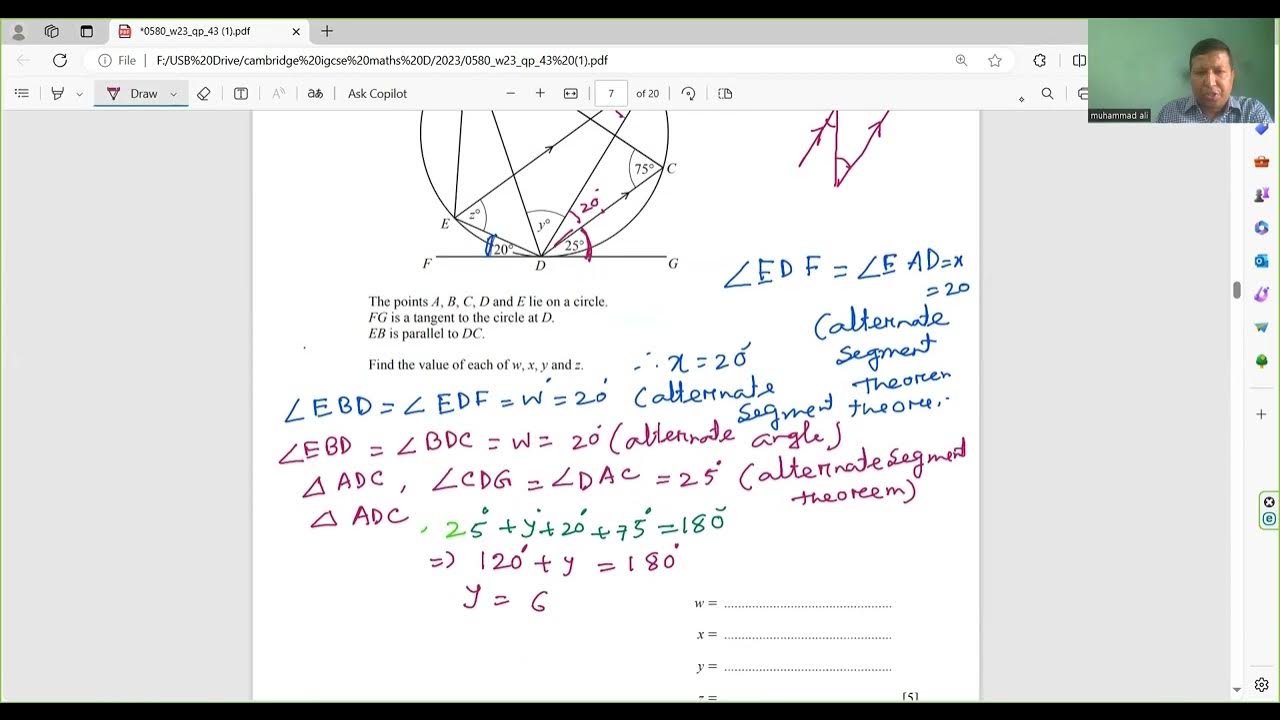 *0580_w23_qp_43 (1).pdf
File F:/USB%20Drive/cambridge%20igcse%20maths%20D/2023/0580_w23_qp_43%20(1).pdf
Draw Ask Copilot 7 of 20
muhammad ali
75° C
20°
E z° y°
20° 25°
F D G
∠EDF = ∠EAD = x
= 20
(alternate
segment
theorem
The points A, B, C, D and E lie on a circle.
FG is a tangent to the circle at D.
EB is parallel to DC.
Find the value of each of w, x, y and z.
∴ x = 20°
∠EBD = ∠EDF = w° = 20° (alternate
segment theore.
∠EBD = ∠BDC = w = 20° (alternate angle)
△ ADC, ∠CDG = ∠DAC = 25° (alternate segment
theoreem)
△ ADC, 25° + y° + 20° + 75° = 180°
=> 120° + y = 180°
y = 6
w =
x =
y =
z =
[5]